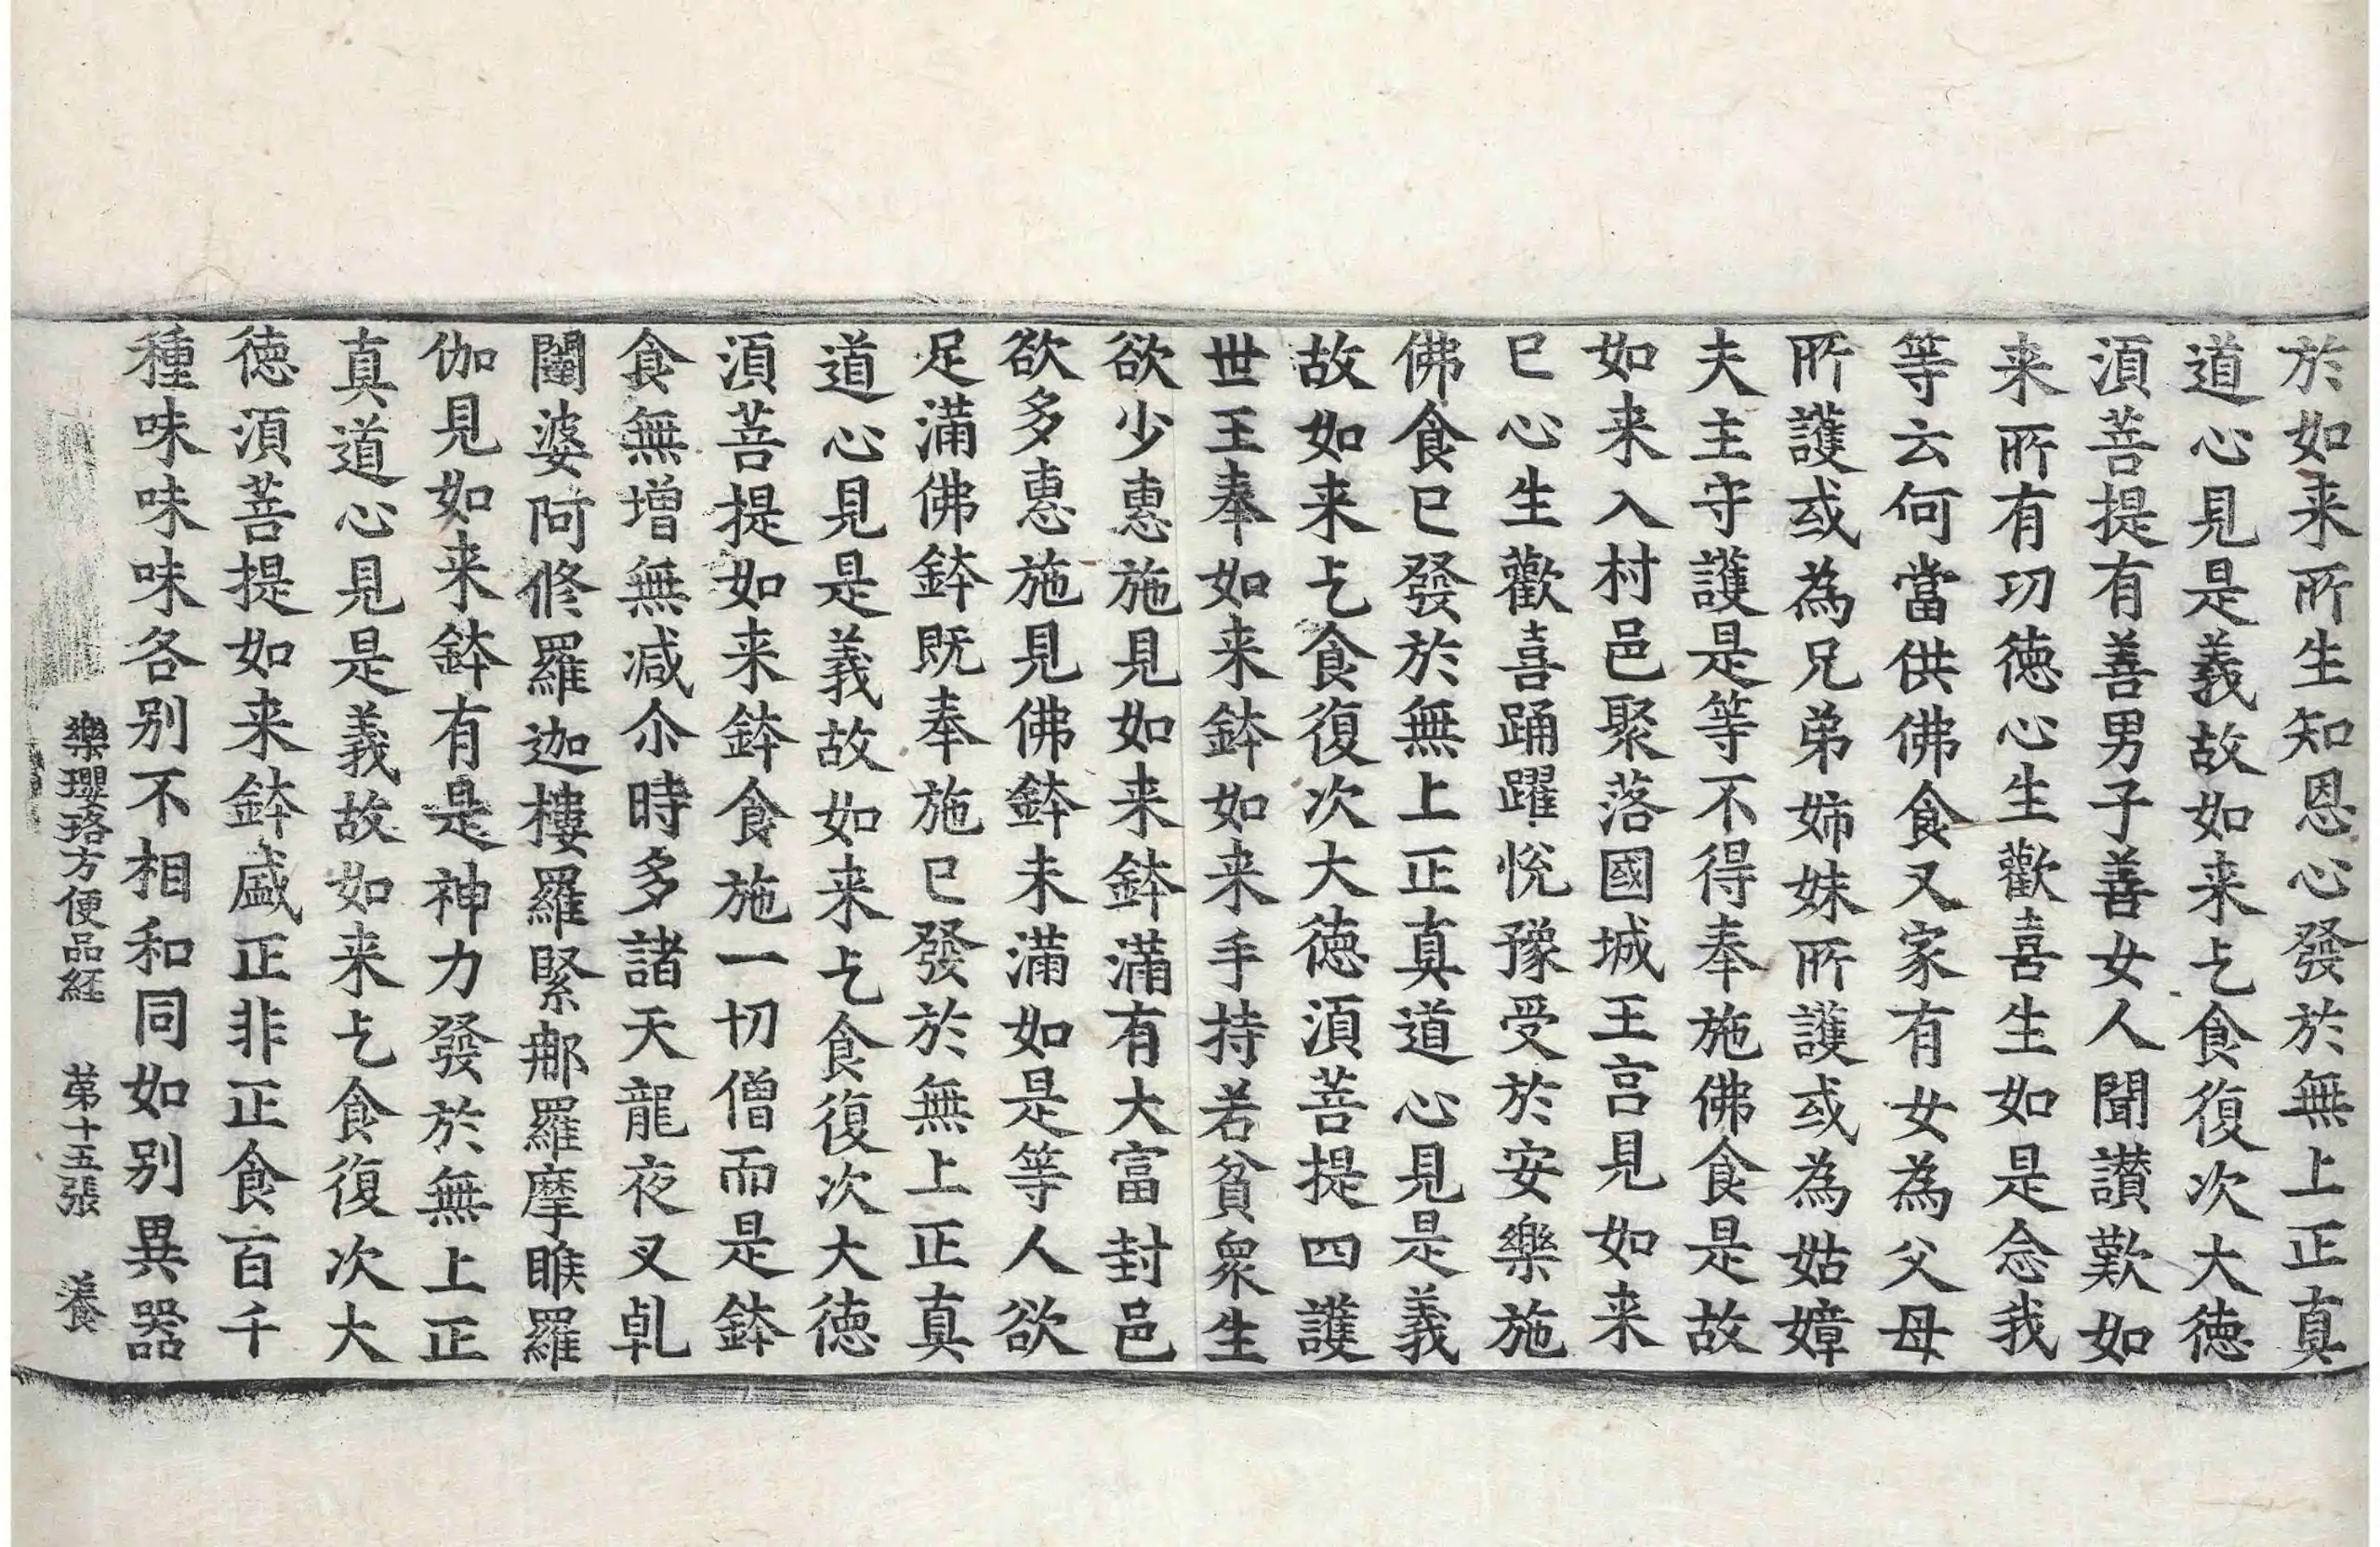 於如来所生知恩心發於無上正真
道心見是義故如来乞食復次大徳
湏菩提有善男子善女人聞讃歎如
来所有功徳心生歡喜生如是念我
等云何當供佛食又家有女為父母
所護或為兄弟姉妹所護或為姑嫜
夫主守護是等不得奉施佛食是故
如来入村邑聚落國城王宫見如来
已心生歡喜踊躍悅豫受於安樂施
佛食已發於無上正真道心見是義
故如来乞食復次大徳湏菩提四護
世王奉如来鉢如来手持若貧衆生
欲少惠施見如来鉢滿有大富封邑
欲多惠施見佛鉢未滿如是等人欲
足滿佛鉢既奉施已發於無上正真
道心見是義故如来乞食復次大徳
湏菩提如来鉢食施一切僧而是鉢
食無增無减尒時多諸天龍夜叉乹
闥婆阿修羅迦樓羅緊那羅摩睺羅
伽見如来鉢有是神力發於無上正
真道心見是義故如来乞食復次大
徳湏菩提如来鉢盛正非正食百千
種味味味各别不相和同如别異器
樂瓔珞方便品経 苐十五張 養